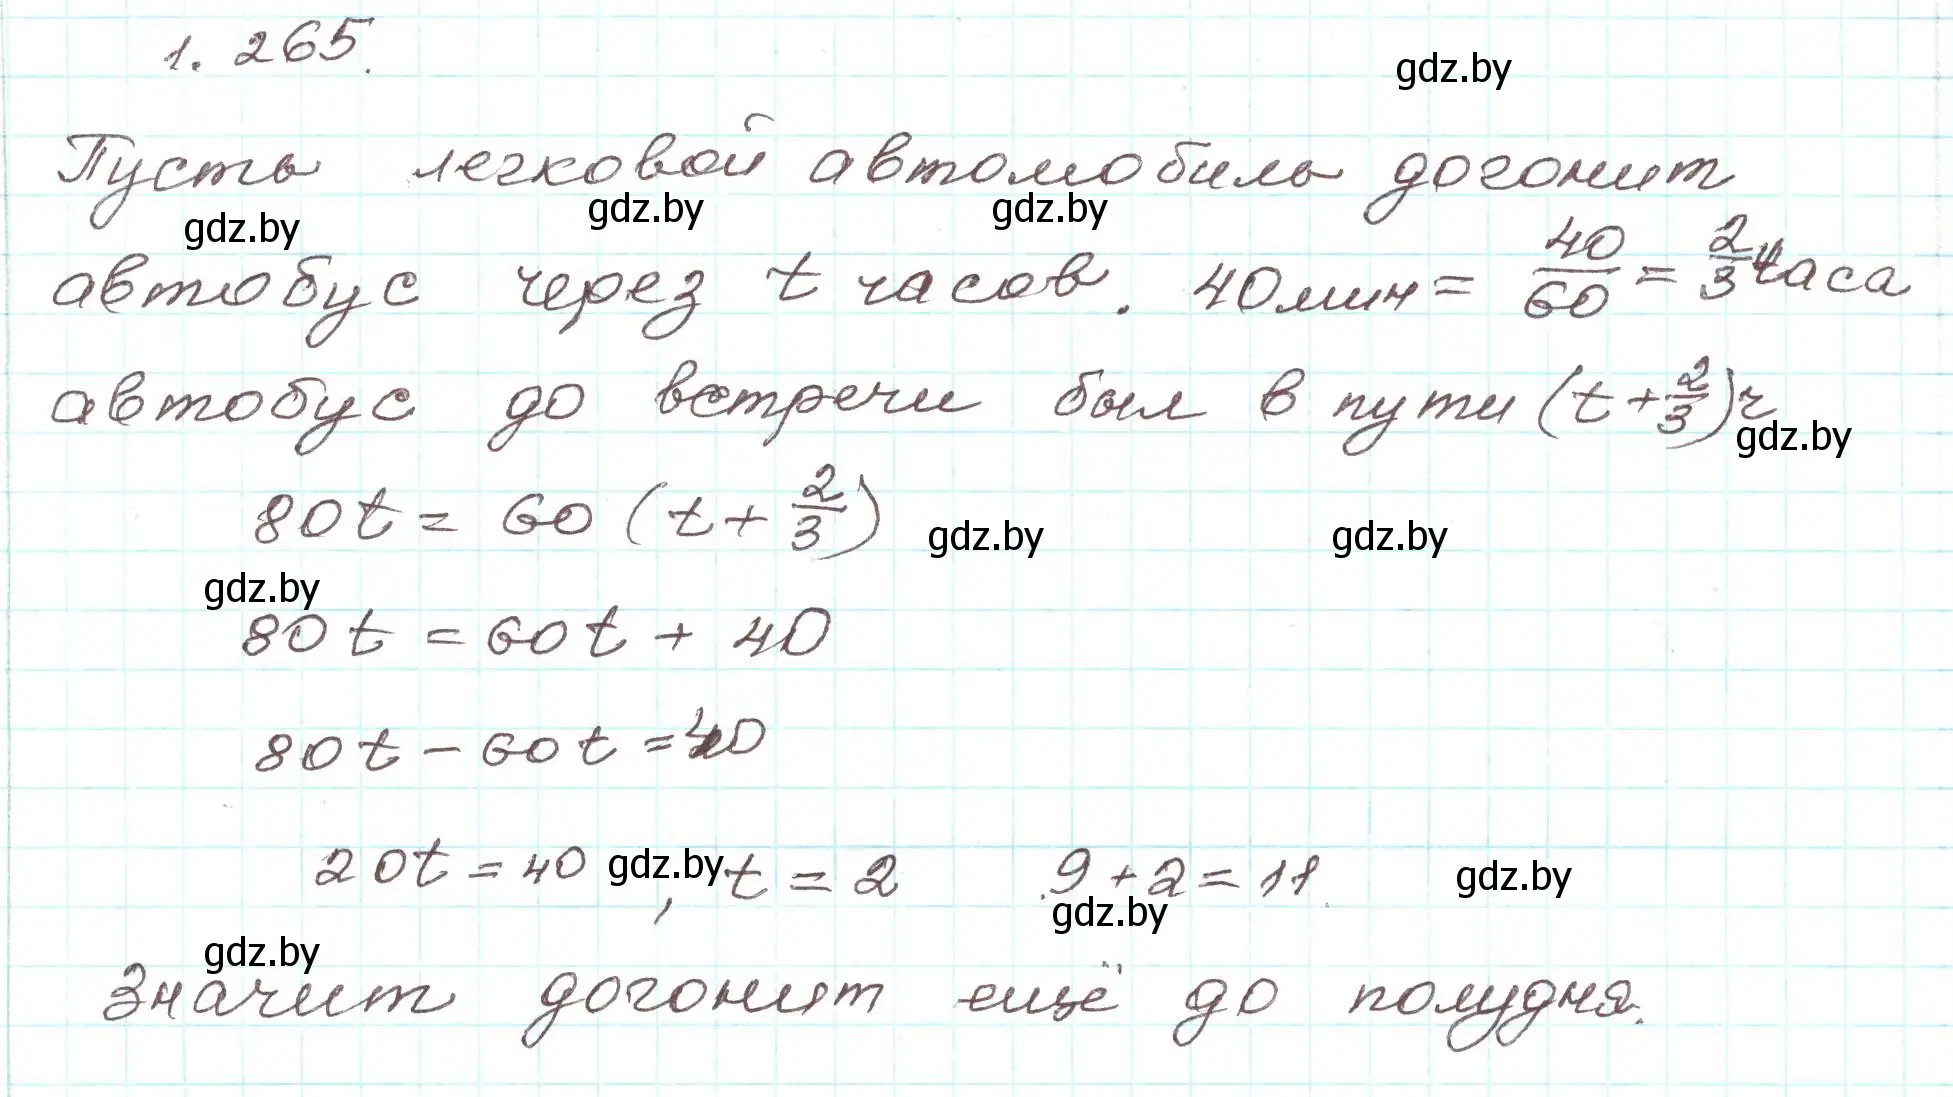 1. 265.
gdz.by
Пусть легковой автомобиль догонит
gdz.by gdz.by gdz.by
автобус через t часов. 40мин = 40/60 = 2/3 часа
автобус до встречи был в пути (t + 2/3) ч
gdz.by
80t = 60 (t + 2/3)
gdz.by gdz.by
gdz.by
80t = 60t + 40
80t - 60t = 40
20t = 40, t = 2 9 + 2 = 11.
gdz.by gdz.by
gdz.by
gdz.by
Значит догонит ещё до полудня.